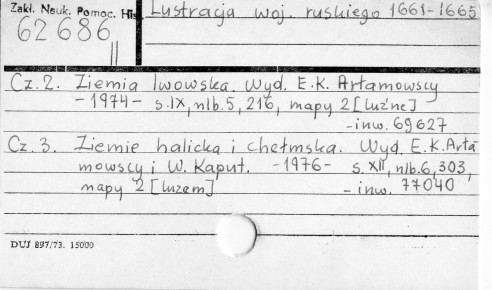 Zakł. Nauk. Pomoc. His
62686
II
Lustracja woj. ruskiego 1661-1665
Cz. 2. Ziemia lwowska. Wyd. E.K. Arłamowscy
- 1974 - s. IX, nlb. 5, 216, mapy 2 [luźne]
- inw. 69627
Cz. 3. Ziemie halicka i chełmska. Wyd. E.K. Arła
mowscy i W. Kaput. - 1976 - s. XII, nlb. 6, 303,
mapy 2 [luzem] - inw. 77040
DUJ 897/73. 15000